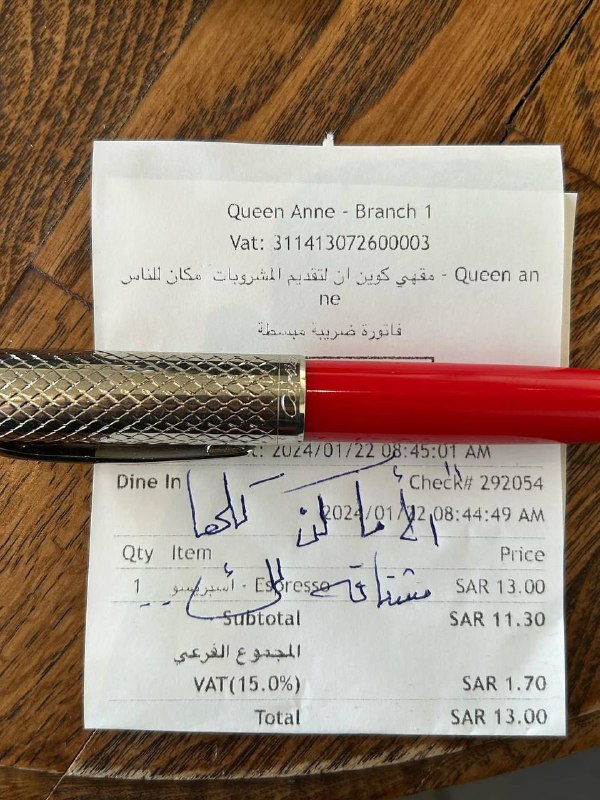 Queen Anne - Branch 1
Vat: 311413072600003
مقهي كوين ان لتقديم المشروبات مكان للناس - Queen an
ne
فاتورة ضريبة مبسطة
2024/01/22 08:45:01 AM
Dine In Check# 292054
الأماكن كلها
2024/01/22 08:44:49 AM
Qty Item Price
مشتاقة
1 أسبريسو - Espresso SAR 13.00
Subtotal SAR 11.30
المجموع الفرعي
VAT(15.0%) SAR 1.70
Total SAR 13.00